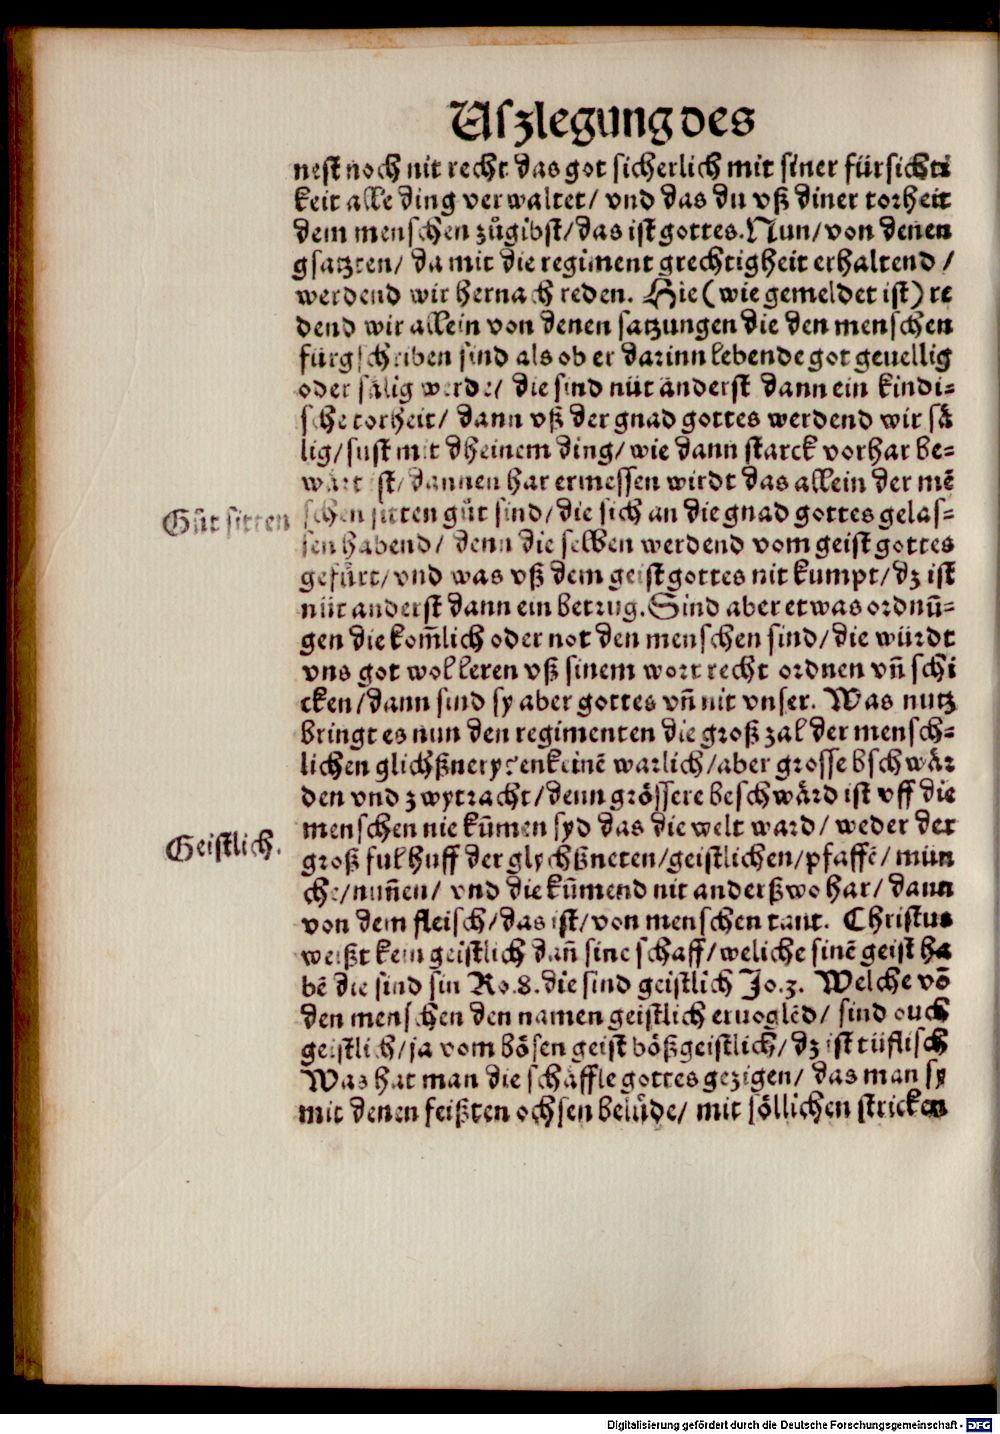 Uszlegung des
nest noch nit recht das got sicherlich mit siner fürsichti
keit alle ding verwaltet/ vnd das du vß diner torheit
dem menschen zůgibst/das ist gottes. Nun/von denen
gsatzten/ da mit die regiment grechtigheit erhaltend /
werdend wir hernach reden. Hie (wie gemeldet ist) re
dend wir allein von denen satzungen die den menschen
fürgschriben sind als ob er darinn lebende got geuellig
oder sälig werde/ die sind nüt anderst dann ein kindi-
sche torheit/ dann vß der gnad gottes werdend wir sä
lig/sust mit dheinem ding/ wie dann starck vorhar be-
wärt ist/ dannen har ermessen wirdt das allein der mē
Gůt sitten
schen sitten gůt sind/ die sich an die gnad gottes gelas-
sen habend/ denn die selben werdend vom geist gottes
gefürt/ vnd was vß dem geist gottes nit kumpt/ dz ist
nüt anderst dann ein betrug. Sind aber etwas ordnū-
gen die kom̄lich oder not den menschen sind/ die würdt
vns got wol leren vß sinem wort recht ordnen vn̄ schi
cken/dann sind sy aber gottes vn̄ nit vnser. Was nutz
bringt es nun den regimenten die groß zal der mensch-
lichen glichßneryen keinē warlich/aber grosse bschwär
den vnd zwytracht/denn grössere beschwärd ist vff die
menschen nie kūmen syd das die welt ward/ weder der
Geistlich.
groß ful huff der glychßneten/geistlichen/pfaffē/ mün
che/nun̄en/ vnd die kūmend nit anderßwo har/ dann
von dem fleisch/das ist/von menschen tant. Christus
weißt kein geistlich dan̄ sine schaff/weliche sinē geist ha
bē die sind sin Ro.8. die sind geistlich Jo.3. Welche vō
den menschen den namen geistlich eruoglēd/ sind ouch
geistlich/ja vom bösen geist bößgeistlich/ dz ist tüflisch
Was hat man die schäffle gottes gezigen/ das man sy
mit denen feißten ochsen belüde/ mit söllichen stricken
Digitalisierung gefördert durch die Deutsche Forschungsgemeinschaft - DFG